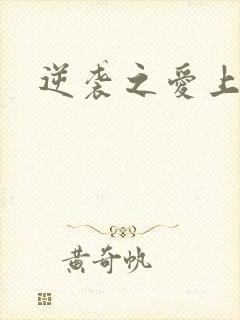 逆袭之愛上
黄奇帆